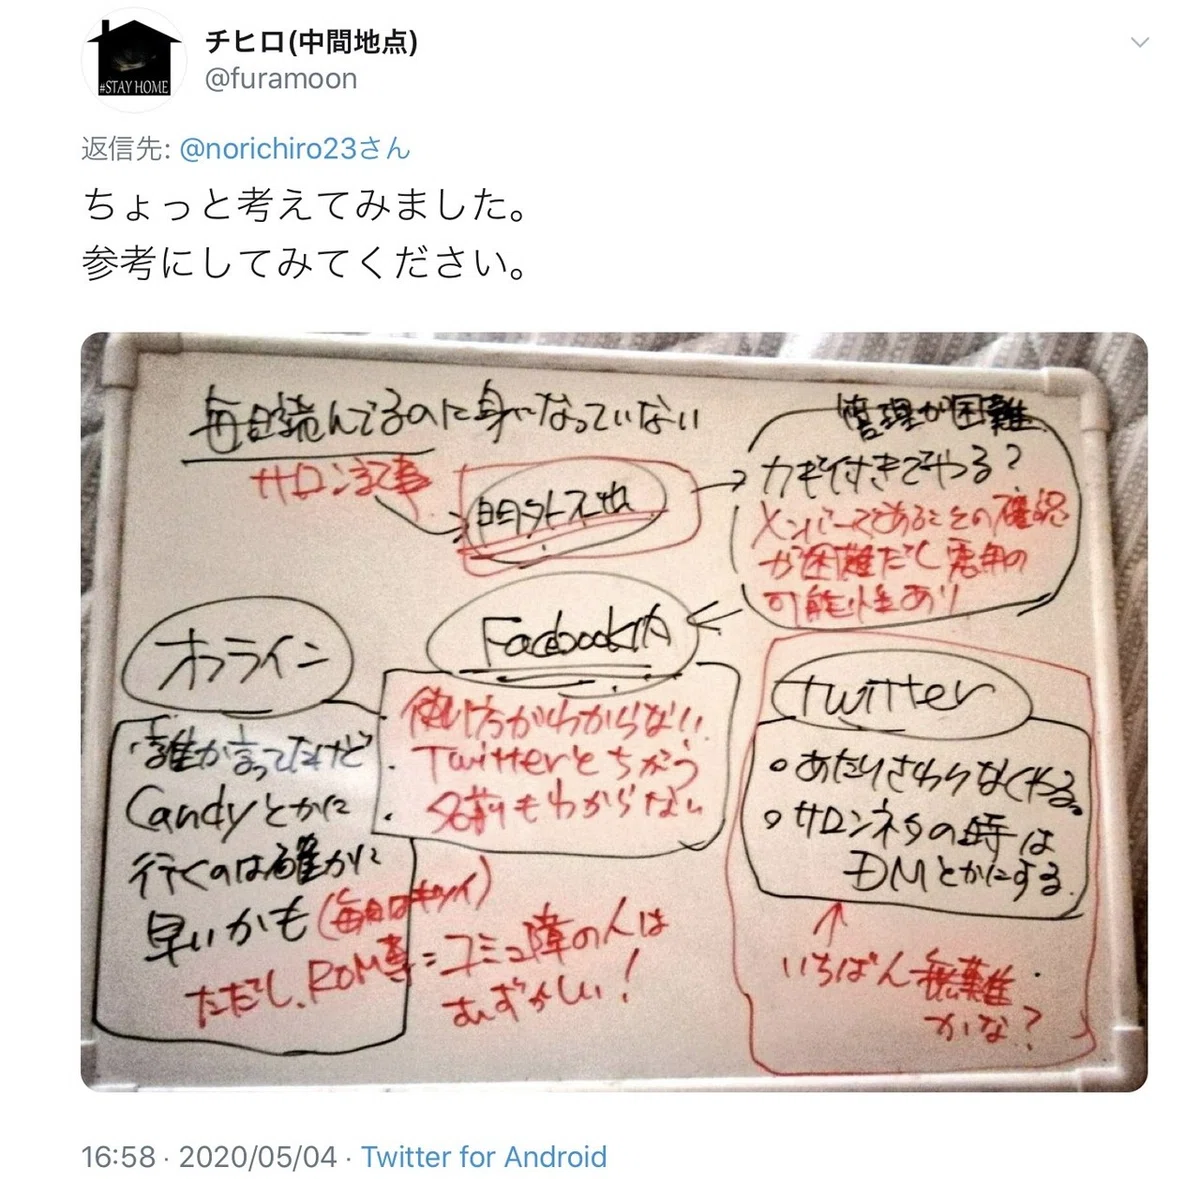 チヒロ(中間地点)
@furamoon
#STAY HOME
返信先: @norichiro23さん
ちょっと考えてみました。
参考にしてみてください。
毎日読んでるのに身になっていない
サロン記事
門外不出
管理が困難
カギ付きでやる?
メンバーであることの確認
が困難だし悪用の
可能性あり
Facebook内
使い方がわからない
Twitterとちがう
名前もわからない
オフライン
誰か言ってたけど
Candyとかに
行くのは確かに
早いかも(毎日はキツイ)
ただし、ROM専=コミュ障の人は
むずかしい!
twitter
あたりさわりなくやる。
サロンネタの時は
DMとかにする
↑
いちばん無難
かな?
16:58 · 2020/05/04 · Twitter for Android